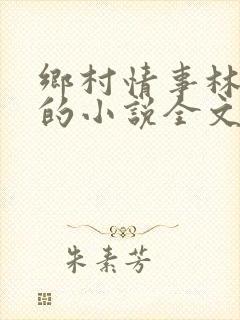 鄉村情事林
的小說全文
朱素芳